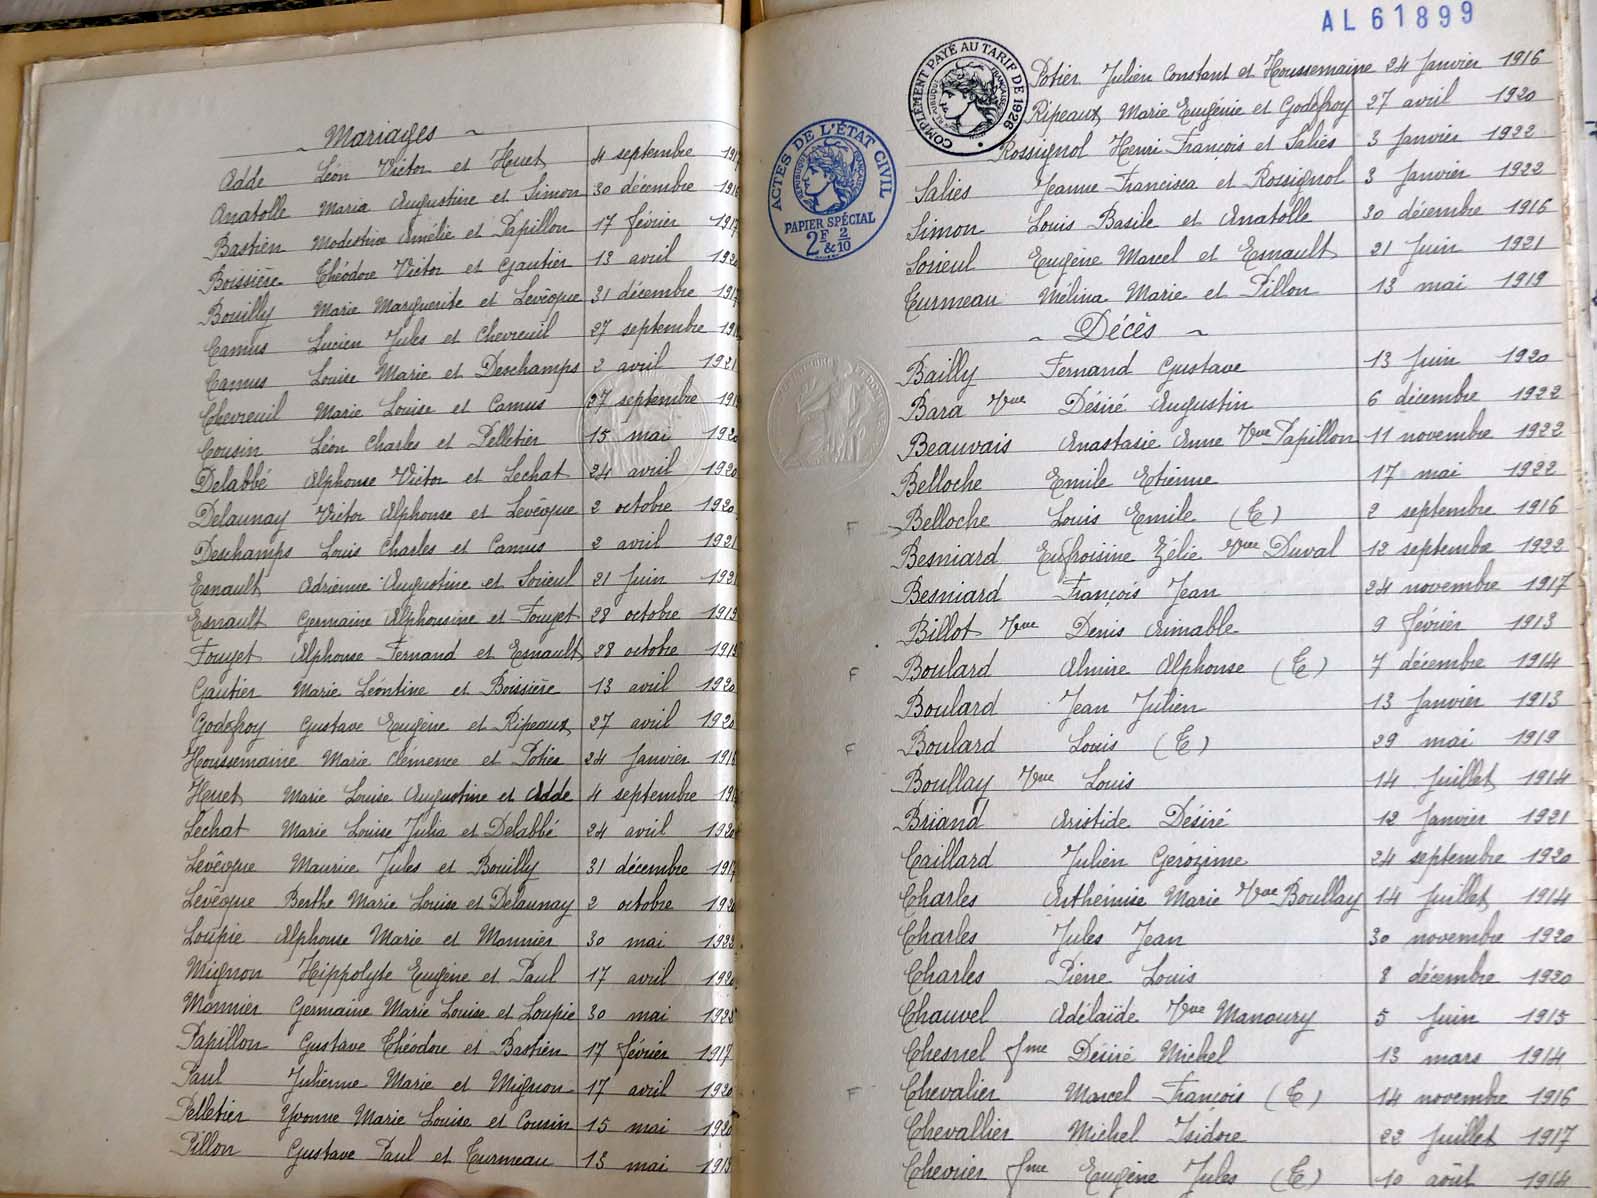 Mariages
Adde Léon Victor et Huet 4 septembre 191
Anatolle Maria Augustine et Simon 30 décembre 1916
Bastien Modestine Amélie et Papillon 17 février 1917
Boissière Théodore Victor et Gautier 13 avril 1920
Bouilly Marie Marguerite et Levêque 31 décembre 1917
Camus Lucien Jules et Chevreuil 27 septembre 19
Camus Louise Marie et Deschamps 2 avril 1921
Chevreuil Marie Louise et Camus 27 septembre 191
Cousin Léon Charles et Pelletier 15 mai 1920
Delabbé Alphonse Victor et Lechat 24 avril 1920
Delaunay Victor Alphonse et Levêque 2 octobre 1920
Deschamps Louis Charles et Camus 2 avril 1921
Esnault Adrienne Augustine et Soreul 21 Juin 1921
Esnault Germaine Alphonsine et Fouyet 28 octobre 1919
Fouyet Alphonse Fernand et Esnault 28 octobre 1919
Gautier Marie Léontine et Boissière 13 avril 1920
Godefroy Gustave Eugène et Ripeaux 27 avril 1920
Houssemaine Marie Clémence et Potier 24 Janvier 1916
Huet Marie Louise Augustine et Adde 4 septembre 191
Lechat Marie Louise Julia et Delabbé 24 avril 1920
Levêque Maurice Jules et Bouilly 31 décembre 1917
Levêque Berthe Marie Louise et Delaunay 2 octobre 1920
Loupie Alphonse Marie et Monnier 30 mai 1922
Mignon Hippolyte Eugène et Paul 17 avril 1920
Monnier Germaine Marie Louise et Loupie 30 mai 1922
Papillon Gustave Théodore et Bastien 17 février 1917
Paul Julienne Marie et Mignon 17 avril 1920
Pelletier Yvonne Marie Louise et Cousin 15 mai 1920
Pillon Gustave Paul et Turmeau 13 mai 1919
AL 61899
COMPLÉMENT PAYÉ AU TARIF DE 1926
RÉPUBLIQUE FRANÇAISE
ACTES DE L'ÉTAT CIVIL
RÉPUBLIQUE FRANÇAISE
PAPIER SPÉCIAL
2F 2
& 10
Potier Julien Constant et Houssemaine 24 Janvier 1916
Ripeaux Marie Eugénie et Godefroy 27 avril 1920
Rossignol Henri François et Saliès 3 Janvier 1922
Saliès Jeanne Francisca et Rossignol 3 Janvier 1922
Simon Louis Basile et Anatolle 30 décembre 1916
Soreul Eugène Marcel et Esnault 21 Juin 1921
Turmeau Mélina Marie et Pillon 13 mai 1919
Décès
Bailly Fernand Gustave 13 Juin 1920
Bara Vve Désiré Augustin 6 décembre 1922
Beauvais Anastasie Anne Vve Papillon 11 novembre 1922
Belloche Emile Etienne 17 mai 1922
F Belloche Louis Emile (E) 2 septembre 1916
Besniard Eufroisine Zélie Vve Duval 12 septembre 1922
Besniard François Jean 24 novembre 1917
Billot Vve Denis Aimable 9 février 1913
F Boulard Almire Alphonse (E) 7 décembre 1914
Boulard Jean Julien 13 Janvier 1913
F Boulard Louis (E) 29 mai 1919
Boullay Vve Louis 14 Juillet 1914
Briand Aristide Désiré 12 Janvier 1921
Caillard Julien Gerózime 24 septembre 1920
Charles Arthémise Marie Vve Boullay 14 Juillet 1914
Charles Jules Jean 30 novembre 1920
Charles Pierre Louis 8 décembre 1920
Chauvel Adélaïde Vve Manoury 5 Juin 1915
Chesnel fme Désiré Michel 13 mars 1914
F Chevalier Marcel François (E) 14 novembre 1916
Chevallier Michel Isidore 22 Juillet 1917
Chevrier fme Eugène Jules (E) 10 août 1914